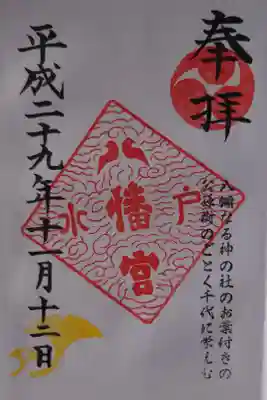 奉拝
八幡なる神の社のお葉付きの
公孫樹のごとく千代に栄えむ
水戸
八幡宮
平成二十九年十一月十二日